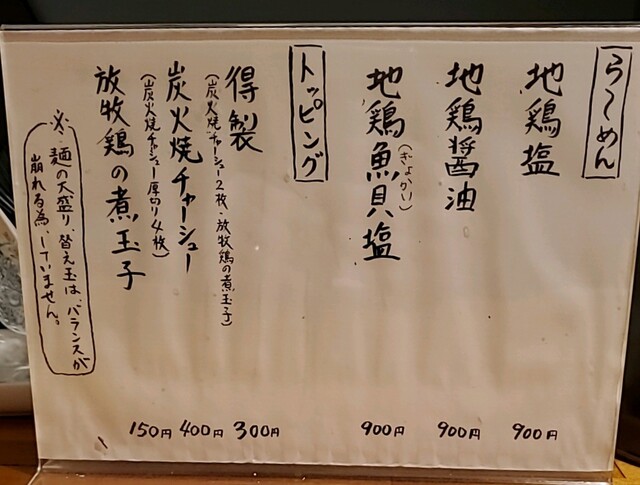 らーめん
地鶏塩
900円
地鶏醤油
900円
地鶏魚貝塩
(ぎょかい)
900円
トッピング
得製
(炭火焼チャーシュー2枚・放牧鶏の煮玉子)
300円
炭火焼チャーシュー
(炭火焼チャーシュー厚切り4枚)
400円
放牧鶏の煮玉子
150円
※麺の大盛り、替え玉は、バランスが
崩れる為、していません。